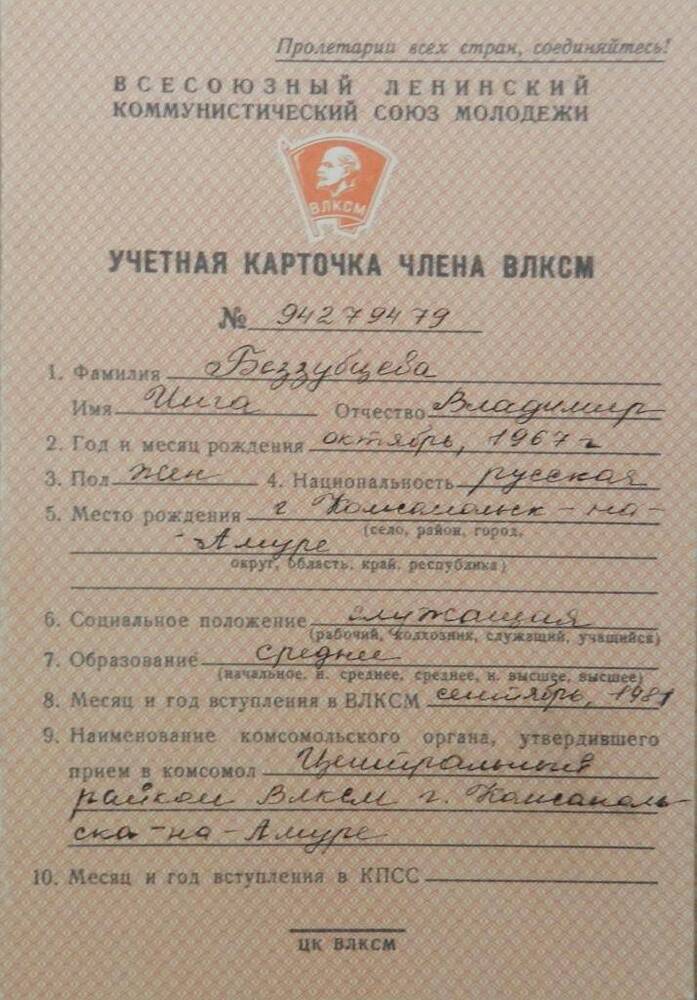 Пролетарии всех стран, соединяйтесь!
ВСЕСОЮЗНЫЙ ЛЕНИНСКИЙ
КОММУНИСТИЧЕСКИЙ СОЮЗ МОЛОДЕЖИ
ВЛКСМ
УЧЕТНАЯ КАРТОЧКА ЧЛЕНА ВЛКСМ
№ 94279479
1. Фамилия Беззубцева
Имя Инга Отчество Владимир
2. Год и месяц рождения октябрь, 1967 г
3. Пол жен 4. Национальность русская
5. Место рождения г Комсомольск-на-
(село, район, город,
-Амуре
округ, область, край, республика)
6. Социальное положение служащая
(рабочий, колхозник, служащий, учащийся)
7. Образование среднее
(начальное, н. среднее, среднее, н. высшее, высшее)
8. Месяц и год вступления в ВЛКСМ сентябрь, 1981
9. Наименование комсомольского органа, утвердившего
прием в комсомол Центральный
райком ВЛКСМ г. Комсомоль-
ска-на-Амуре
10. Месяц и год вступления в КПСС
ЦК ВЛКСМ